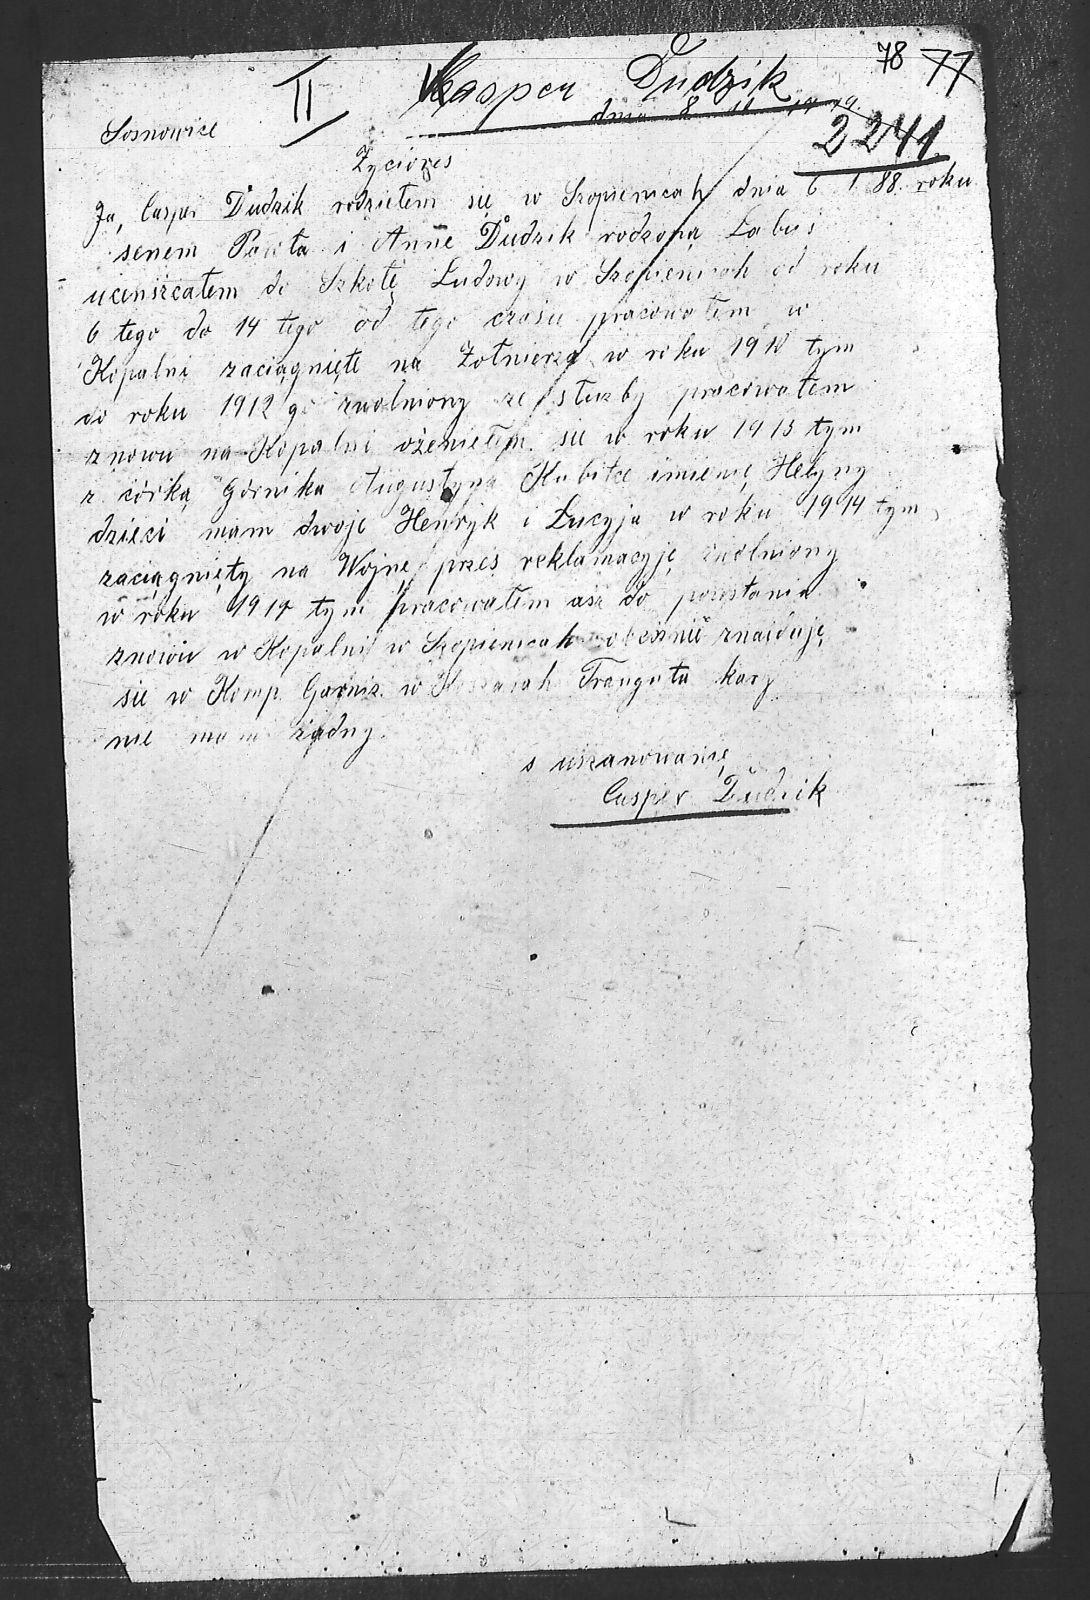 78 77
II Kasper Dudzik
Sosnowice dnia 8 11 19 19.
2241
Zyciorys
Ja, Casper Dudzik rodziełem się w Szopienicah dnia 6 1. 88. roku
senem Pawła i Anne Dudzik rodzona Labus
uczenszcałem do Szkołę Ludowy w Szopienicah od roku
6 tego do 14 tego od tego czasu pracowałem w
Kopalni zaciągnięte na Żołnierza w roku 1910 tym
do roku 1912 go zwolniony ze służby pracowałem
znowu na Kopalni ożeniełem sie w roku 1913 tym
z córką Górnika Augustyna Kubitce imienię Helyny
dzieci mam dwoje Henryk i Lucyja w roku 1914 tym
zaciągnięty na Wojnę przes reklamacyję zwolniony
w roku 1917 tym pracowałem asz do powstania
znowu w Kopalni w Szopienicah obecznie znaiduję
sie w Komp. Garniz. w Koszarah Trauguta kary
nie mam żadny.
s uszanowanię
Casper Dudzik